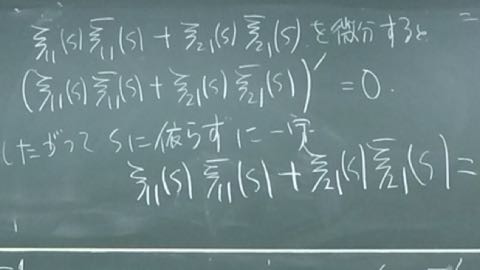 ξ₁₁(s) ξ̄₁₁(s) + ξ₂₁(s) ξ̄₂₁(s) を微分すると
(ξ₁₁(s) ξ̄₁₁(s) + ξ₂₁(s) ξ̄₂₁(s))′ = 0.
したがって sに依らずに一定
ξ₁₁(s) ξ̄₁₁(s) + ξ₂₁(s) ξ̄₂₁(s) =